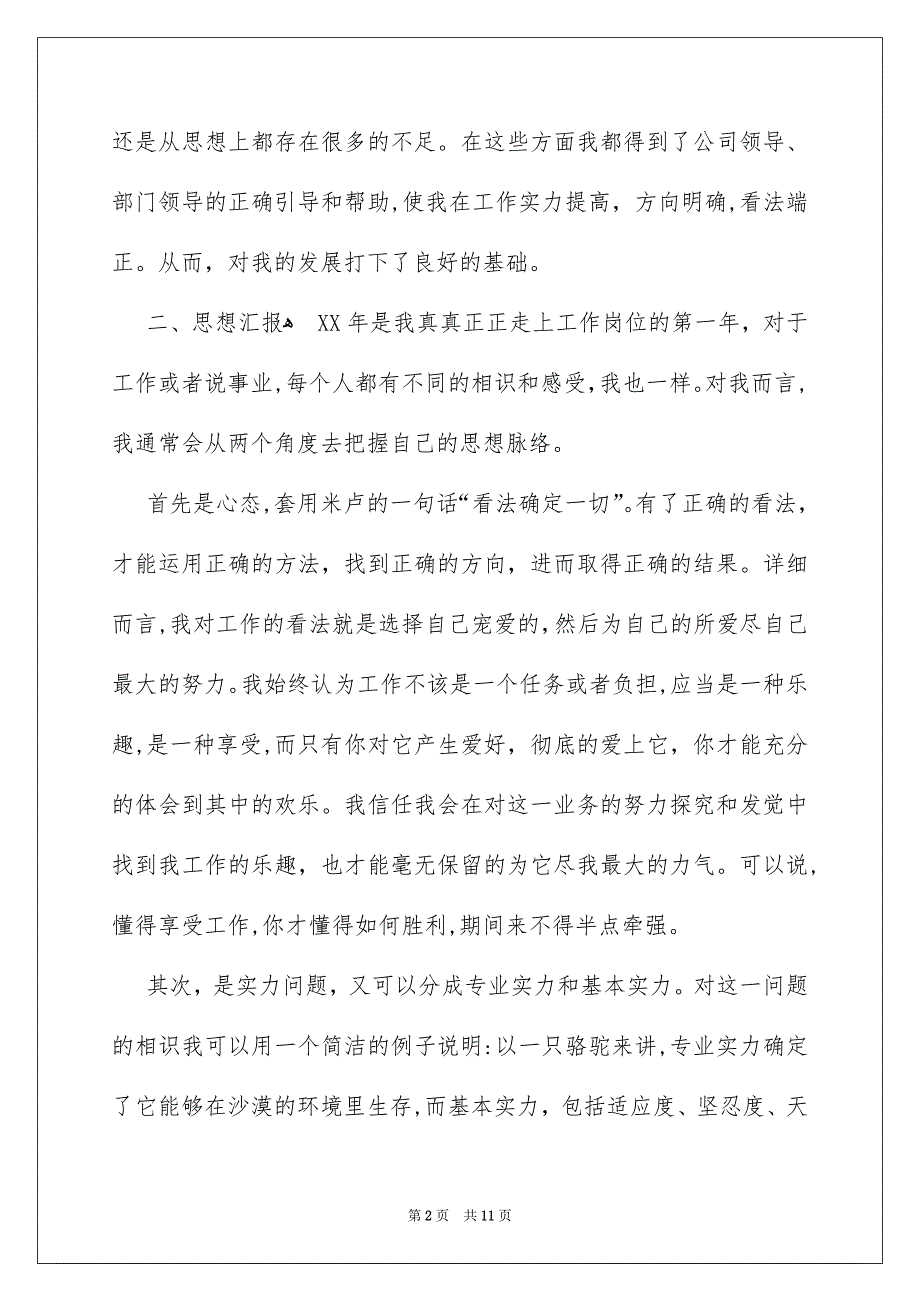 还是从思想上都存在很多的不足。在这些方面我都得到了公司领导、
部门领导的正确引导和帮助,使我在工作实力提高，方向明确,看法端
正。从而，对我的发展打下了良好的基础。
二、思想汇报ﻫ XX 年是我真真正正走上工作岗位的第一年，对于
工作或者说事业,每个人都有不同的相识和感受,我也一样。对我而言,
我通常会从两个角度去把握自己的思想脉络。
首先是心态,套用米卢的一句话“看法确定一切”。有了正确的看法，
才能运用正确的方法，找到正确的方向，进而取得正确的结果。详细
而言,我对工作的看法就是选择自己宠爱的,然后为自己的所爱尽自己
最大的努力。我始终认为工作不该是一个任务或者负担,应当是一种乐
趣,是一种享受,而只有你对它产生爱好，彻底的爱上它，你才能充分
的体会到其中的欢乐。我信任我会在对这一业务的努力探究和发觉中
找到我工作的乐趣，也才能毫无保留的为它尽我最大的力气。可以说,
懂得享受工作,你才懂得如何胜利,期间来不得半点牵强。
其次，是实力问题，又可以分成专业实力和基本实力。对这一问题
的相识我可以用一个简洁的例子说明:以一只骆驼来讲,专业实力确定
了它能够在沙漠的环境里生存,而基本实力，包括适应度、坚忍度、天
第 2 页 共 11 页